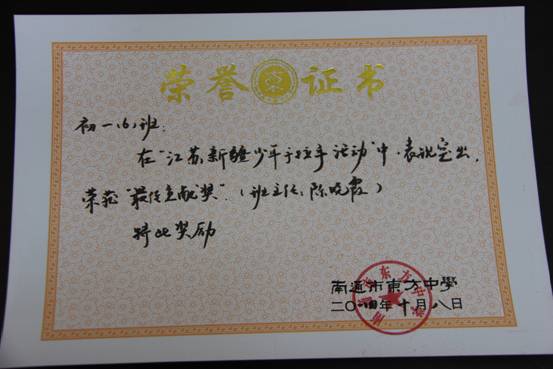 荣誉证书
初一(6)班:
在"江苏新疆少年手拉手活动"中,表现突出,
荣获"最佳贡献奖"。(班主任:陈晓霞)
特此奖励
南通市東方中學
二〇一四年十月八日